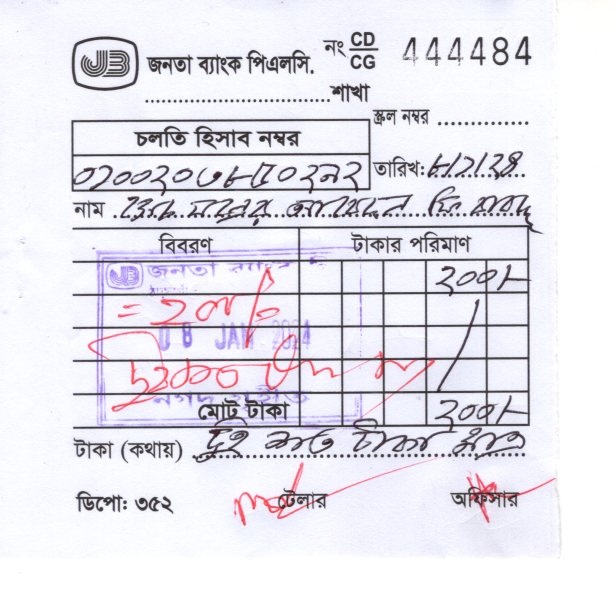 JB জনতা ব্যাংক পিএলসি. নং CD/CG 444484
....................................শাখা
স্ক্রল নম্বর ...................
চলতি হিসাব নম্বর
তারিখ: ৮/১/২৪
নাম
বিবরণ টাকার পরিমাণ
JB জনতা ব্যাংক
২০০/-
= ২০০/-
08 JAN 2024
নগদ গৃহীত
মোট টাকা ২০০/-
টাকা (কথায়) দুই শত টাকা মাত্র
ডিপো: ৩৫২ টেলার অফিসার